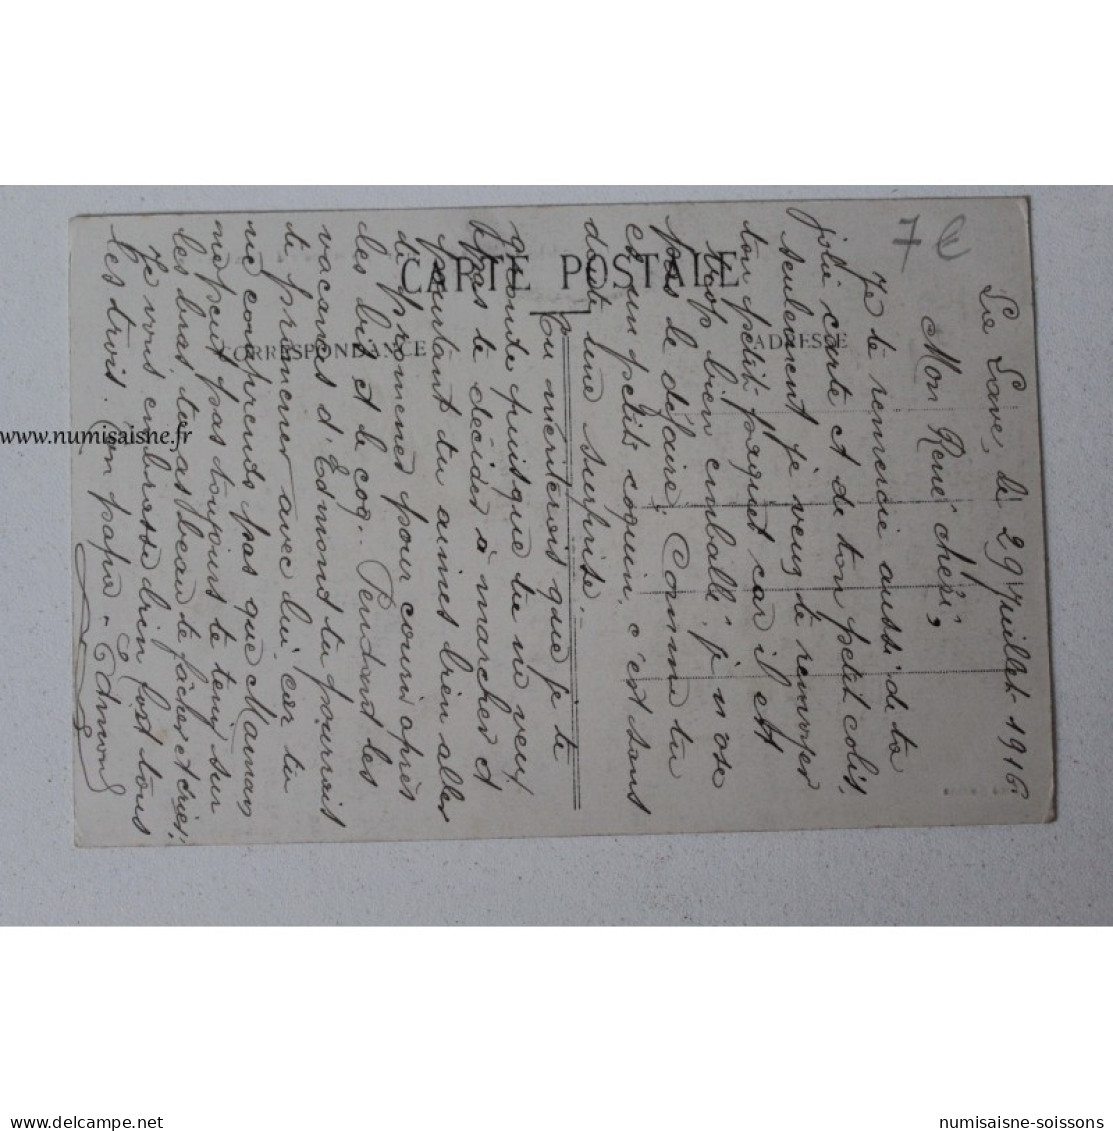 La Lave, le 29 juillet 1916
Mon René chéri,
Je te remercie aussi de ta
jolie carte et de ton petit colis,
seulement je veux te renvoyer
ton petit paquet car il est
trop bien emballé, je n'ose
pas le défaire. Comme tu
es un petit coquin, c'est sans
doute une surprise.
Tu mériterais que je te
gronte puisque tu ne veux
pas te décider à marcher et
pourtant tu aimes bien aller
te promener pour courir après
les bis et le coq. Pendant les
vacances d'Edmont tu pourrais
te promener avec lui, car tu
ne comprends pas que Maman
ne peut pas toujours te tenir sur
les bras, tu as beau te fâcher et crier.
Je vous embrasse bien fort tous
les trois. Ton papa - Edmond
CARTE POSTALE
CORRESPONDANCE
ADRESSE
7 €
www.numisaisne.fr
delcampe.net
numisaisne-soissons